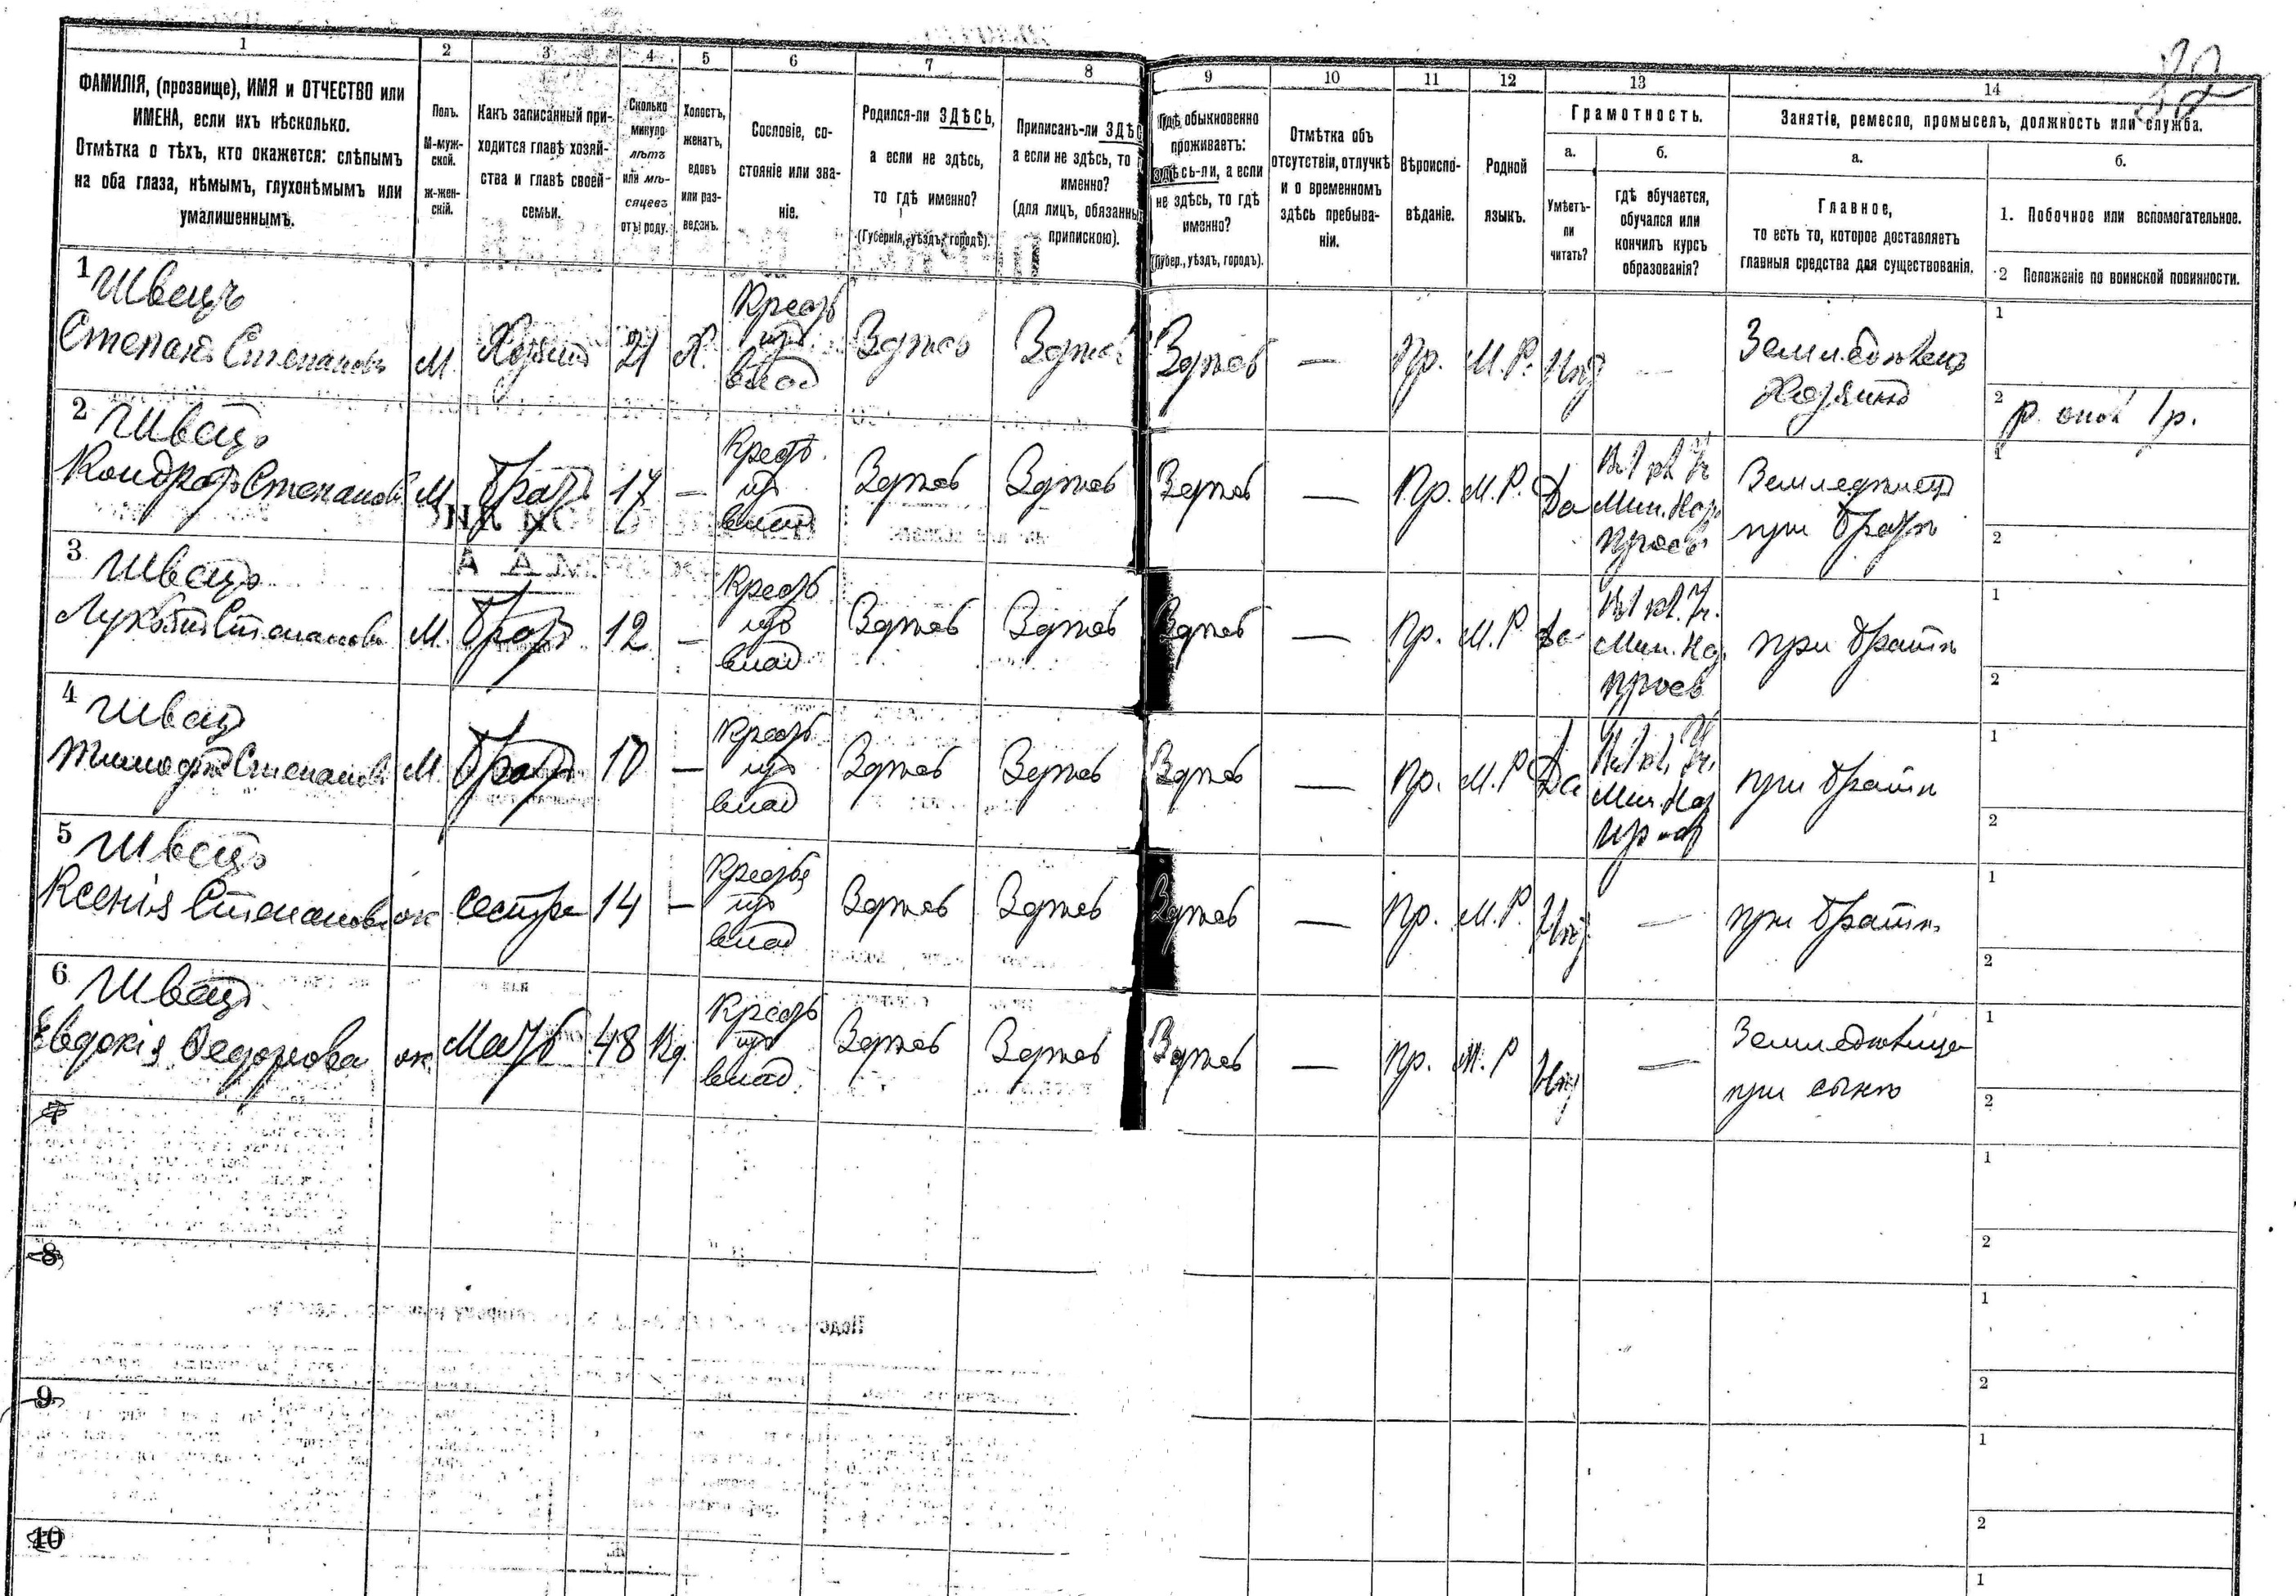 32
1
2
3
4
5
6
7
8
9
10
11
12
13
14
ФАМИЛІЯ, (прозвище), ИМЯ и ОТЧЕСТВО или
ИМЕНА, если ихъ нѣсколько.
Отмѣтка о тѣхъ, кто окажется: слѣпымъ
на оба глаза, нѣмымъ, глухонѣмымъ или
умалишеннымъ.
Полъ.
М-муж-
ской.
ж-жен-
скій.
Какъ записанный при-
ходится главѣ хозяй-
ства и главѣ своей
семьи.
Сколько
минуло
лѣтъ
или мѣ-
сяцевъ
отъ роду.
Холостъ,
женатъ,
вдовъ
или раз-
веденъ.
Сословіе, со-
стояніе или зва-
ніе.
Родился-ли ЗДѢСЬ,
а если не здѣсь,
то гдѣ именно?
(Губернія, уѣздъ, городъ).
Приписанъ-ли ЗДѢС
а если не здѣсь, то
именно?
(для лицъ, обязанны
припискою).
Гдѣ обыкновенно
проживаетъ:
здѣсь-ли, а если
не здѣсь, то гдѣ
именно?
(Губер., уѣздъ, городъ).
Отмѣтка объ
отсутствіи, отлучкѣ
и о временномъ
здѣсь пребыва-
ніи.
Вѣроиспо-
вѣданіе.
Родной
языкъ.
Грамотность.
а.
Умѣетъ-
ли
читать?
б.
гдѣ обучается,
обучался или
кончилъ курсъ
образованія?
Занятіе, ремесло, промыселъ, должность или служба.
а.
Главное,
то есть то, которое доставляетъ
главныя средства для существованія.
б.
1. Побочное или вспомогательное.
2 Положеніе по воинской повинности.
1 Швецъ
Степанъ Степановъ М. Хозяинъ 21 Х. Крестъ Здѣсь Здѣсь Здѣсь — Пр. М. Р. Нѣт — Земледѣлецъ
изъ
влад
Хозяинъ
1
2 р. опол 1 р.
2 Швецъ
Кондратъ Степановъ М. Братъ 17 — Крест. Здѣсь Здѣсь Здѣсь — Пр. М. Р. Да
изъ
влад
Мин. Нар.
просв
при братѣ
1
2
3 Швецъ
Степановъ М. Братъ 12 — Крестъ Здѣсь Здѣсь Здѣсь — Пр. М. Р Да
изъ
влад
Мин. Нар.
просв
при братѣ
1
2
4 Швецъ
Тимофей Степановъ М. Братъ 10 — Крестъ Здѣсь Здѣсь Здѣсь — Пр. М. Р Да
изъ
влад
Мин. Нар
при братѣ
1
2
5 Швецъ
Ксенія Степанова ж Сестра 14 — Здѣсь Здѣсь Здѣсь — Пр. М. Р. Нѣт —
изъ
влад
при братѣ
1
2
6 Швецъ
Евдокія Федорова ж. Мать 48 Вд. Крестъ Здѣсь Здѣсь Здѣсь — Пр. М. Р Нѣт —
изъ
влад
при сынѣ
1
2
7
1
2
8
1
2
9
1
2
10
1